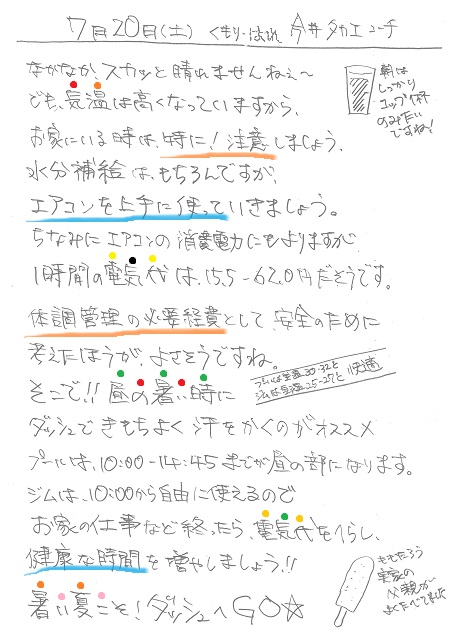 7月20日(土) くもり・はれ 今井タカエコーチ
なかなか、スカッと晴れませんねぇ〜
でも、気温は高くなっていますから、
お家にいる時は、特に!注意しましょう。
水分補給は、もちろんですが、
エアコンを上手に使っていきましょう。
ちなみにエアコンの消費電力にもよりますが
1時間の電気代は、15.5-62.0円だそうです。
体調管理の必要経費として、安全のために
考えたほうが、よさそうですね。
そこで!!昼の暑い時に
ダッシュできもちよく汗をかくのがオススメ
プールは、10:00-14:45までが昼の部になります。
ジムは、10:00から自由に使えるので
お家の仕事など終ったら、電気代をへらし、
健康な時間を増やしましょう!!
暑い夏こそ!ダッシュへGO☆
朝は
しっかり
コップ1杯
のみたい
ですね!
プールは室温30-32℃
ジムは気温25-27℃
快適
ももたろう
実家の
父親が
よくたべてました